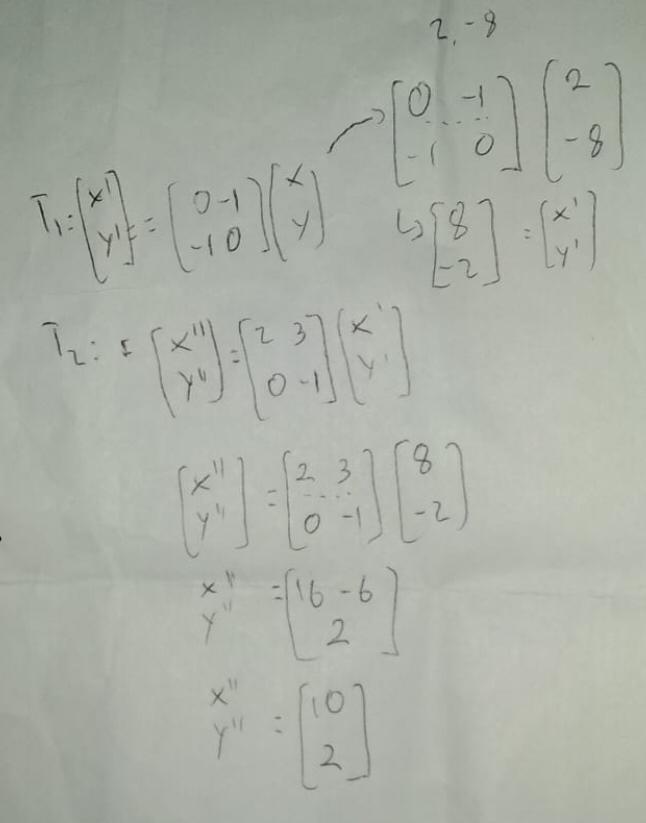 2, -8
[0 -1
-1 0] [2
-8]
T₁ = [x'
y'] = [0 -1
-1 0] [x
y]
↳ [8
-2] = [x'
y']
T₂ : [x''
y''] = [2 3
0 -1] [x'
y']
[x''
y''] = [2 3
0 -1] [8
-2]
x''
y'' = [16 - 6
2]
x''
y'' = [10
2]